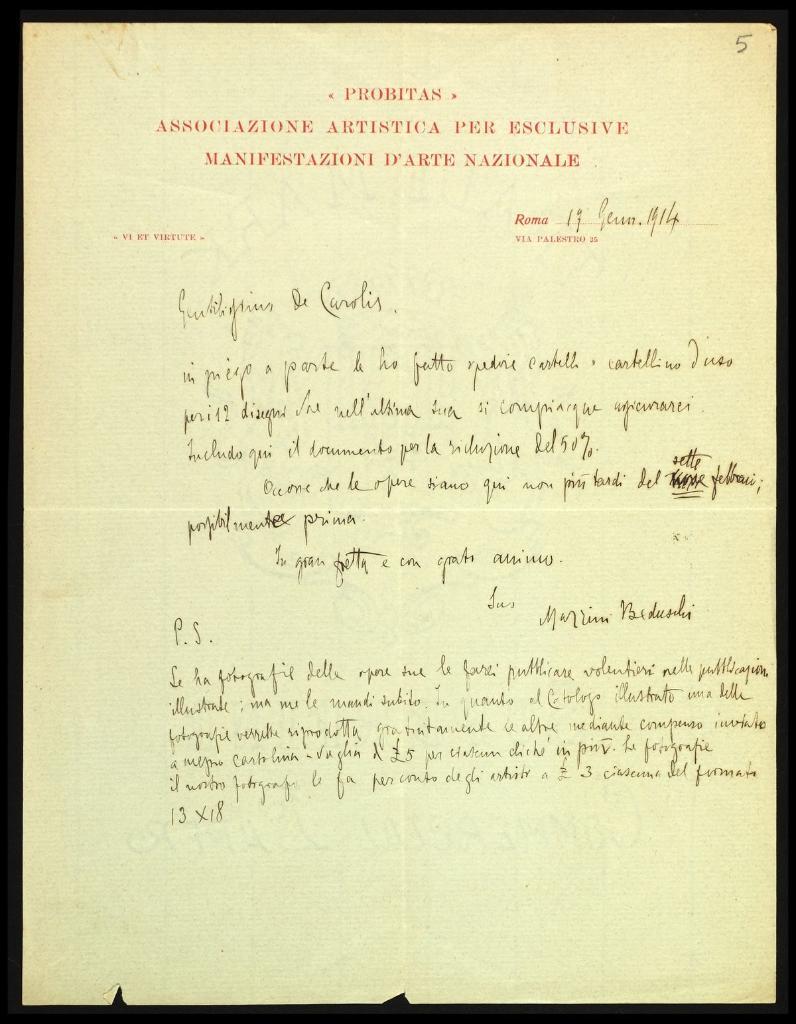 5
« PROBITAS »
ASSOCIAZIONE ARTISTICA PER ESCLUSIVE
MANIFESTAZIONI D'ARTE NAZIONALE
Roma 19 Genn. 1914
« VI ET VIRTUTE »
VIA PALESTRO 25
Gentilissimo De Carolis.
in piego a parte le ho fatto spedire cartelli e cartellino d'uso
per i 12 disegni che nell'ultima sua si compiacque assicurarci.
Includo qui il documento per la riduzione del 50%.
Occorre che le opere siano qui non più tardi del sette febbraio;
possibilmente prima.
In gran fretta e con grato animo.
Suo
Mazzini Beduschi
P. S.
Se ha fotografie delle opere sue le farei pubblicare volentieri nelle pubblicazioni
illustrate; ma me le mandi subito. In quanto al Catologo illustrato una delle
fotografie verrebbe riprodotta gratuitamente le altre mediante compenso inviato
a mezzo cartolina-vaglia di £ 5 per ciascun cliché in più. Le fotografie
il nostro fotografo le fa per conto degli artisti a £ 3 ciascuna del formato
13 X 18